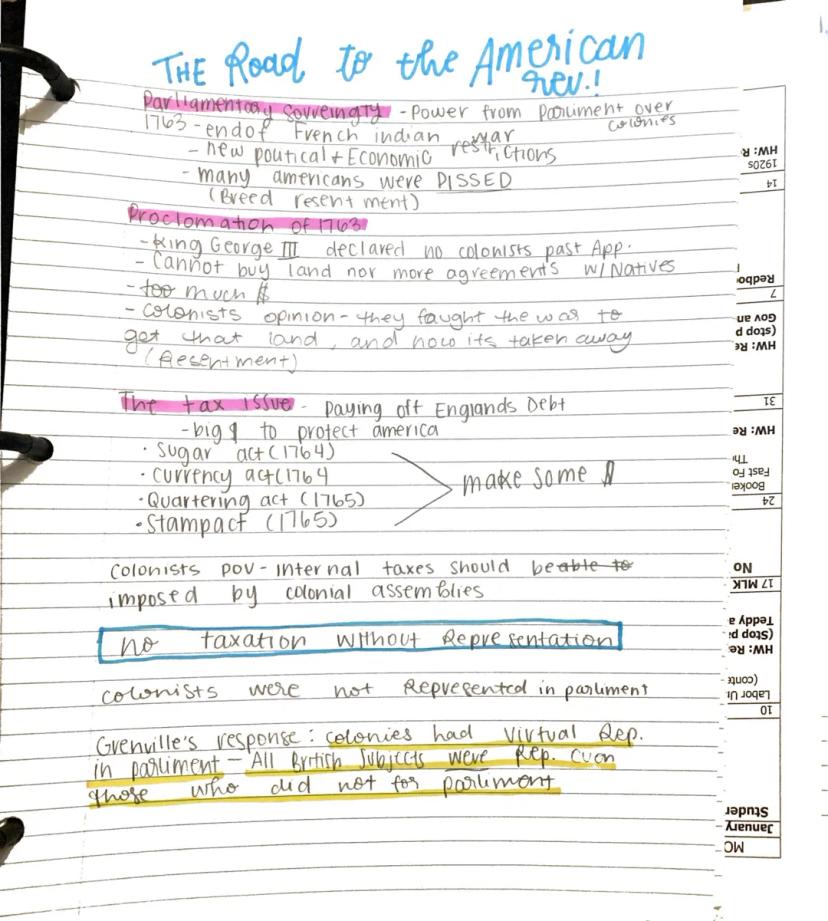 THE Road to the American
rev.!
Parliamentary Sovreingty - Power from Parliment over
colonies
1763 - end of French indian war
- new political + Economic restrictions
- many americans were PISSED
(Breed resentment)
Proclomation of 1763
- King George III declared no colonists past App.
- Cannot buy land nor more agreements w/ Natives
- too much $
- colonists opinion - they faught the war to
get that land, and now its taken away
(Resentment)
The tax issue - paying off Englands Debt
- big $ to protect america
· Sugar act (1764)
· Currency act (1764
· Quartering act (1765)
· Stampact (1765)
make some $
colonists pov - internal taxes should be able to
imposed by colonial assemblies
no taxation without Representation
colonists were not Represented in parliment
Grenville's response: colonies had virtual Rep.
in parliment - All British Subjects were Rep. even
those who did not for parliment
MC
January
Studer
10
Labor Ui
(conti
HW: Re
(Stop pa
Teddy a
17 MLK
No
24
Bookei
Fast Fo
Thi
HW: Re
31
HW: Re
(stop p
Gov an
7
Redbo
14
1920s
HW: R